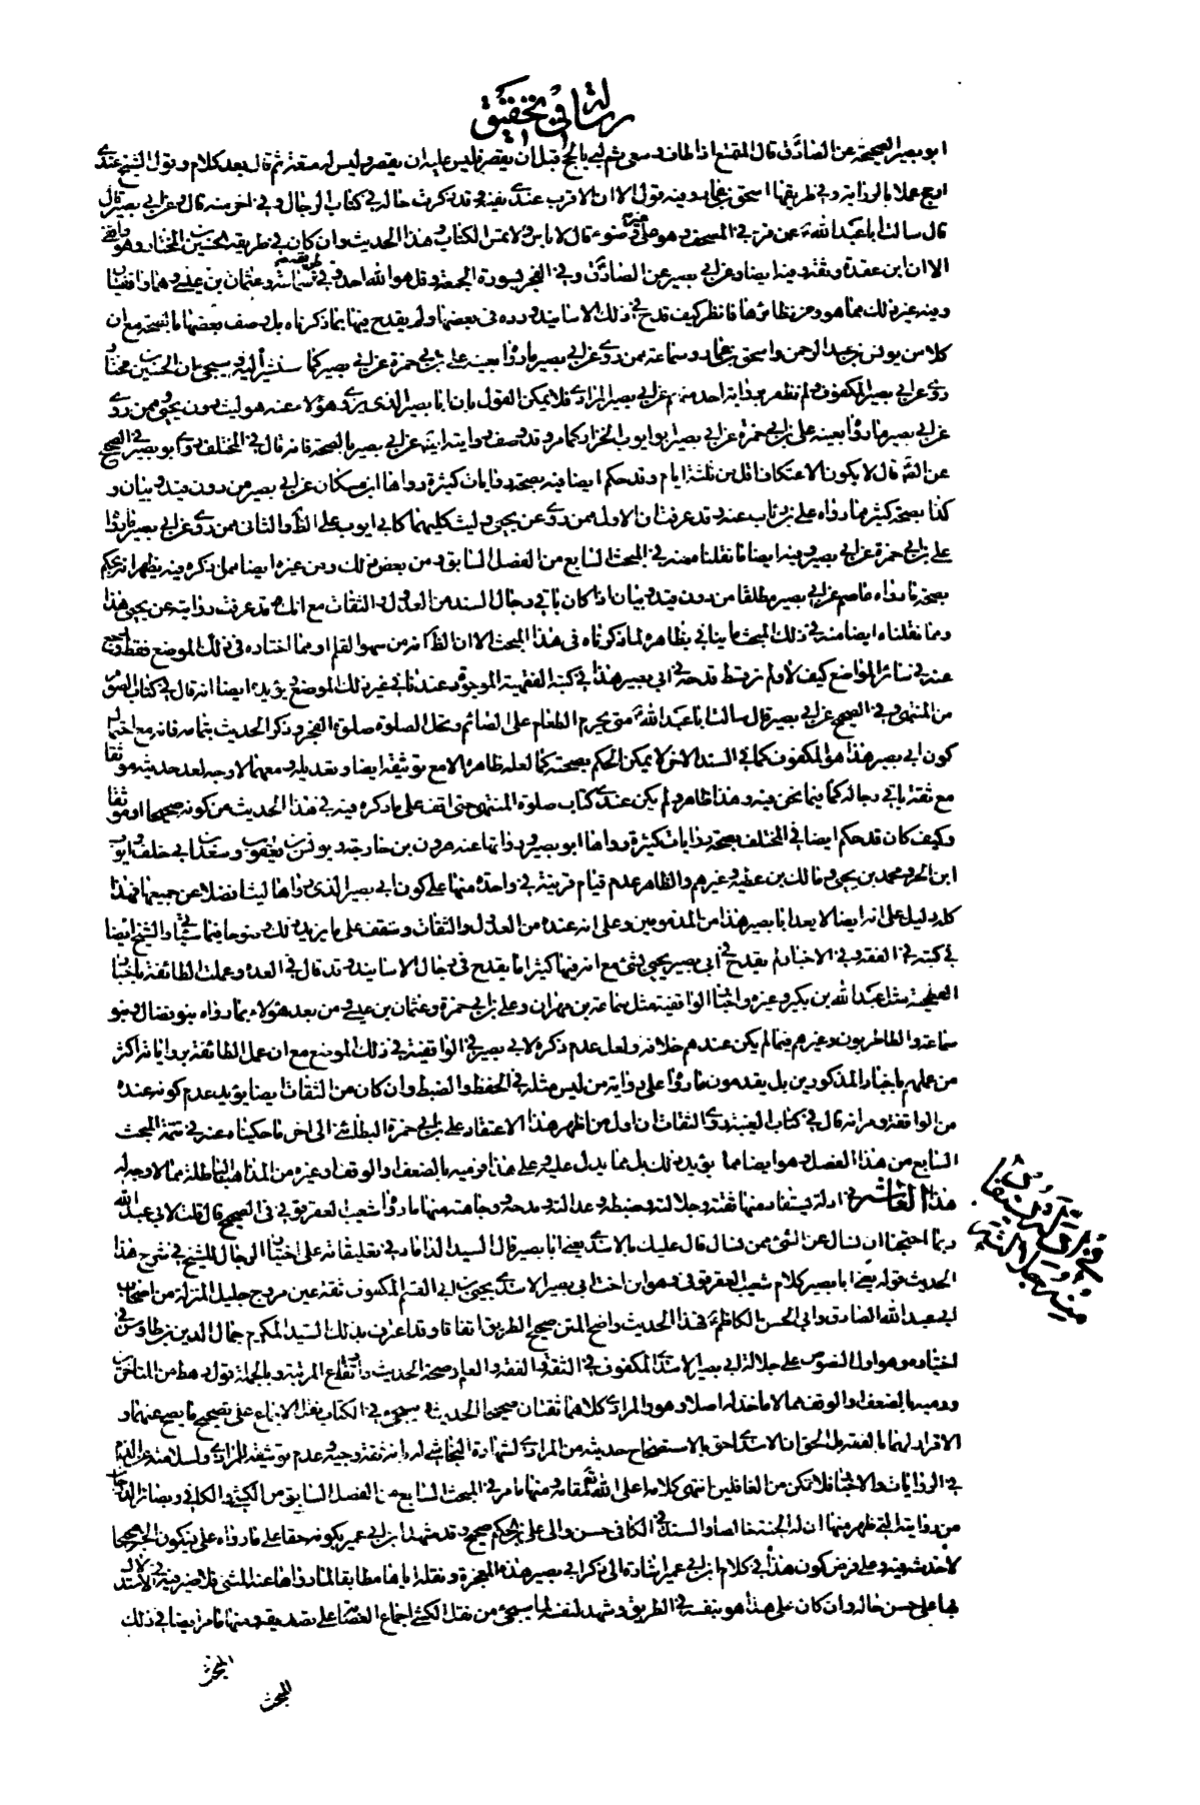 رسالة في تحقيق
ابو بصير الصحيحة عن الصادق قال المتمتع اذا طاف وسعى ثم لبى بالحج قبل ان يقصر فليس عليه ان يقصر وليس له متعة ثم قال بعد كلام وقول الشيخ عندي
اوجه عملا بالرواية وفي طريقها اسحق بن عمار وفيه قول الا ان الاقرب عندي ثقته وقد ذكرت حاله في كتاب الرجال وفي اخر منه قال وعن ابي بصير قال
قال سالت ابا عبد الله عن قرء في المصحف وهو على غير وضوء قال لا باس ولا يمس الكتاب وهذا الحديث وان كان في طريقه الحسين بن المختار وهو واقفي
الا ان ابن عقدة وثقه وفيه ايضا وعن ابي بصير عن الصادق وفي الفجر بسورة الجمعة وقل هو الله احد وفي طريقه سماعة وعثمان بن عيسى وهما واقفيان
وفيه غير ذلك مما هو من نظائرها فانظر كيف قدح في ذلك الاسانيد ورده في بعضها ولم يقدح فيها بما ذكرناه بل وصف بعضها بالصحة مع ان
كلا من يونس بن عبد الرحمن واسحق بن عمار وسماعة ممن روى عن ابي بصير ما رواه بعينه علي بن ابي حمزة عن ابي بصير كما سنشير اليه وسيجئ ان الحسين بن مختار
روى عن ابي بصير المكفوف ولم تظهر رواية احد منهم عن ابي بصير المرادي فلا يمكن القول بان ابا بصير الذي يروي هؤلاء عنه هو ليث دون يحيى وممن روى
عن ابي بصير ما رواه بعينه علي بن ابي حمزة عن ابي بصير ابو ايوب الخزاز كما مر وقد وصف روايته ايضا عن ابي بصير بالصحة فانه قال في المختلف روى ابو بصير في الصحيح
عن الصه قال لا يكون الاعتكاف اقل من ثلثة ايام وقد حكم ايضا فيه بصحة روايات كثيرة رواها ابن مسكان عن ابي بصير من دون قيد وبيان و
كذا بصحة كثير مما رواه علي بن رئاب عنه وقد عرفت ان الاول ممن روى عن يحيى وليث كليهما كابي ايوب على الظ والثاني ممن روى عن ابي بصير ما رواه
علي بن ابي حمزة عن ابي بصير وفيه ايضا ما نقلنا منه في المبحث السابع من الفصل السابق ومن بعض ذلك ومن غيره ايضا مما ذكره فيه يظهر انه يحكم
بصحة ما رواه عاصم عن ابي بصير مطلقا من دون قيد وبيان اذا كان باقي رجال السند من العدول والثقات مع انك قد عرفت روايته عن يحيى هذا
وما نقلناه ايضا منه في ذلك المبحث ما ينافي بظاهره لما ذكرناه في هذا المبحث الا ان الظ انه من سهو القلم او مما اختاره في ذلك الموضع فقط ورجع
عنه في سائر المواضع كيف لا ولم نر قط قدحه في ابي بصير هذا في كتبه الفقهية الموجودة عندنا في غير ذلك الموضع ويؤيده ايضا انه قال في كتاب الصوم
من المنتهى وفي الصحيح عن ابي بصير قال سالت ابا عبد الله متى يحرم الطعام على الصائم وتحل الصلوة صلوة الفجر وذكر الحديث بتمامه فانه مع احتمال
كون ابي بصير هذا هو المكفوف كما في السند الاخر لا يمكن الحكم بصحته كما لعله ظاهر الا مع توثيقه ايضا وتعديله ومعهما لا وجه لعد حديثه موثقا
مع ثقة باقي رجاله كما فيما نحن فيه وهذا ظاهر ولم يكن عندي كتاب صلوة المنتهى حتى اقف على ما ذكره فيه في هذا الحديث من كونه صحيحا او موثقا
وكيف كان قد حكم ايضا في المختلف بصحة روايات كثيرة رواها ابو بصير ورواتها عنه هرون بن خارجة ويونس بن يعقوب وسعد بن ابي خلف وايوب
ابن الحر ومحمد بن يحيى ومالك بن عطية وغيرهم والظاهر عدم قيام قرينة في واحدة منها على كون ابي بصير الذي رواها ليثا فضلا عن جميعها فهذا
كله دليل على انه ايضا لا يعد ابا بصير هذا من المذمومين وعلى انه عنده من العدول والثقات وستقف على ما يزيد ذلك وضوحا فيما سيأتي والشيخ ايضا
في كتبه في الفقه وفي الاخبار لم يقدح في ابي بصير يحيى بشئ مع انه فيها كثيرا ما يقدح في رجال الاسانيد وقد قال في العدة وعملت الطائفة باخبار
الفطحية مثل عبد الله بن بكير وغيره واخبار الواقفية مثل سماعة بن مهران وعلي بن ابي حمزة وعثمان بن عيسى ومن بعد هؤلاء بما رواه بنو فضال وبنو
سماعة والطاطريون وغيرهم فيما لم يكن عندهم خلافه ولعل عدم ذكره لابي بصير في الواقفية في ذلك الموضع مع ان عمل الطائفة برواياته اكثر
من عملهم باخبار المذكورين بل يقدمون ما رواه على رواية من ليس مثله في الحفظ والضبط وان كان من الثقات ايضا يؤيد عدم كونه عنده
من الواقفة ومر انه قال في كتاب الغيبة روى الثقات ان اول من اظهر هذا الاعتقاد علي بن ابي حمزة البطائني الى اخر ما حكيناه عنه في تتمة المبحث
السابع من هذا الفصل وهو ايضا مما يؤيد ذلك بل مما يدل عليه وعلى هذا فرميه بالضعف او الوقف او غيره من المذاهب الباطلة مما لا وجه له
هذا العاشر في ادلة يستفاد منها ثقته وجلالته وضبطه وعدالته ومدحه ووجاهته منها ما رواه شعيب العقرقوفي في الصحيح قال قلت لابي عبد الله
ربما احتجنا ان نسال عن الشئ ممن نسال قال عليك بالاسدي يعني ابا بصير قال السيد الداماد في تعليقاته على اختيار الرجال للشيخ في شرح هذا
الحديث قوله يعني ابا بصير كلام شعيب العقرقوفي وهو ابن اخت ابي بصير الاسدي يحيى بن ابي القسم المكفوف ثقة عين ممدوح جليل المنزلة من اصحاب
ابي عبد الله الصادق وابي الحسن الكاظم فهذا الحديث واضح المتن صحيح الطريق اتفاقا وقد اعترف بذلك السيد المكرم جمال الدين بن طاوس في
اختياره وهو اول النصوص على جلالة ابي بصير الاسدي المكفوف في الثقة والفقه والعلم وصحة الحديث وارتفاع المرتبة وبالجملة قول رهط من المتاخرين
ورميه بالضعف والوقف مما لا ماخذ له اصلا وهو والمرادي كلاهما ثقتان صحيحا الحديث وسيجئ في الكتاب نقل الاجماع على تصحيح ما يصح عنهما و
الاقرار لهما بالفقه بل الحق ان الاسدي احق بالاستصحاح حديثه من المرادي لشهادة النجاشي له بانه ثقة وجيه وعدم توثيقه المرادي ولسلامته عن الذم
في الروايات والاخبار فلا تكن من الغافلين انتهى كلامه اعلى الله مقامه ومنها ما مر في المبحث السابع من الفصل السابق من الكشي والكافي وبصائر الدرجات
من روايته التي ظهر منها ان له الجنة خالصا والسند في الكافي حسن والى علي بن الحكم صحيح وقد شهد ابن ابي عمير بكونه حقا على ما رواه علي فيكون الخبر صحيحا
لا حد شعبة وعلى فرض كون هذا في كلام ابن ابي عمير اشارة الى ذكر ابي بصير هذه المعجزة ونقله اياها مطابقا لما رواها عند المشي فلا ضير فيه في الاستدلال
بها على حسن حاله وان كان على هذا هو بنفسه في الطريق وشهد لنفسه لما سيجئ من نقل الكشي اجماع العصابة على تصديقه ومنها ما مر ايضا في ذلك
المبحث
المبحث